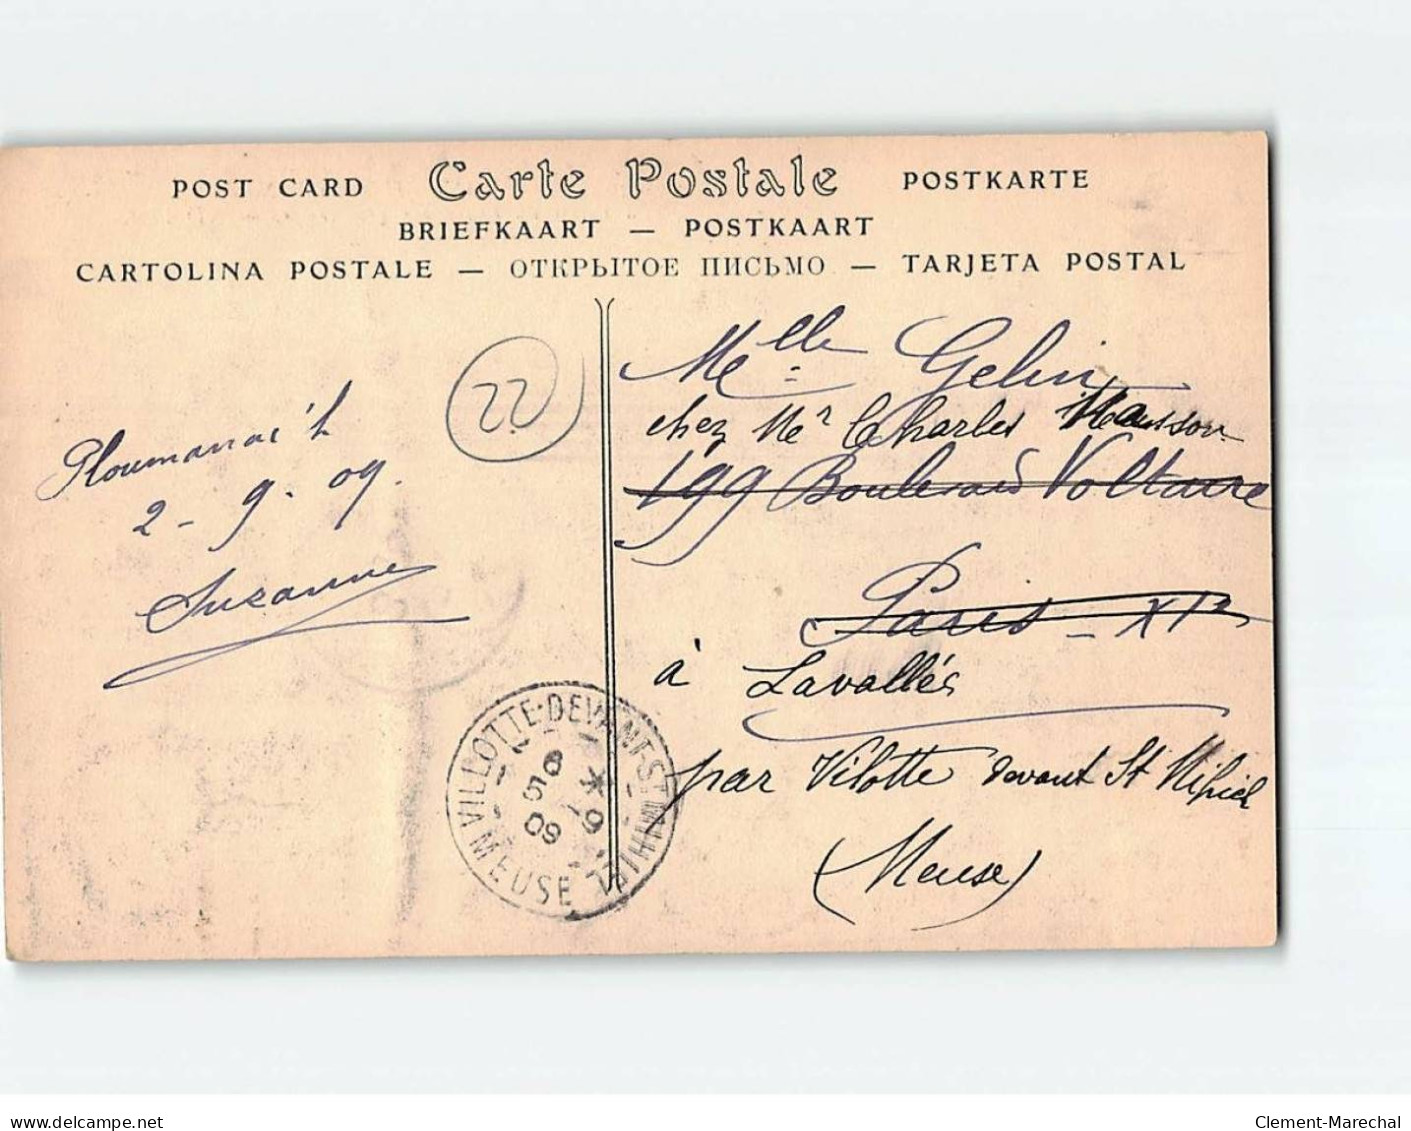 POST CARD Carte Postale POSTKARTE
BRIEFKAART — POSTKAART
CARTOLINA POSTALE — ОТКРЫТОЕ ПИСЬМО — TARJETA POSTAL
22
Ploumanac'h
2 - 9. 09.
Suzanne
Melle Gelin
chez Mr Charles Hausson
199 Boulevard Voltaire
Paris - XIe
à Lavallée
par Vilotte devant St Mihiel
(Meuse)
VILLOTTE-DEVANT-ST MIHIEL
6 *
5 - 9
09
MEUSE
www.delcampe.net
Clement-Marechal